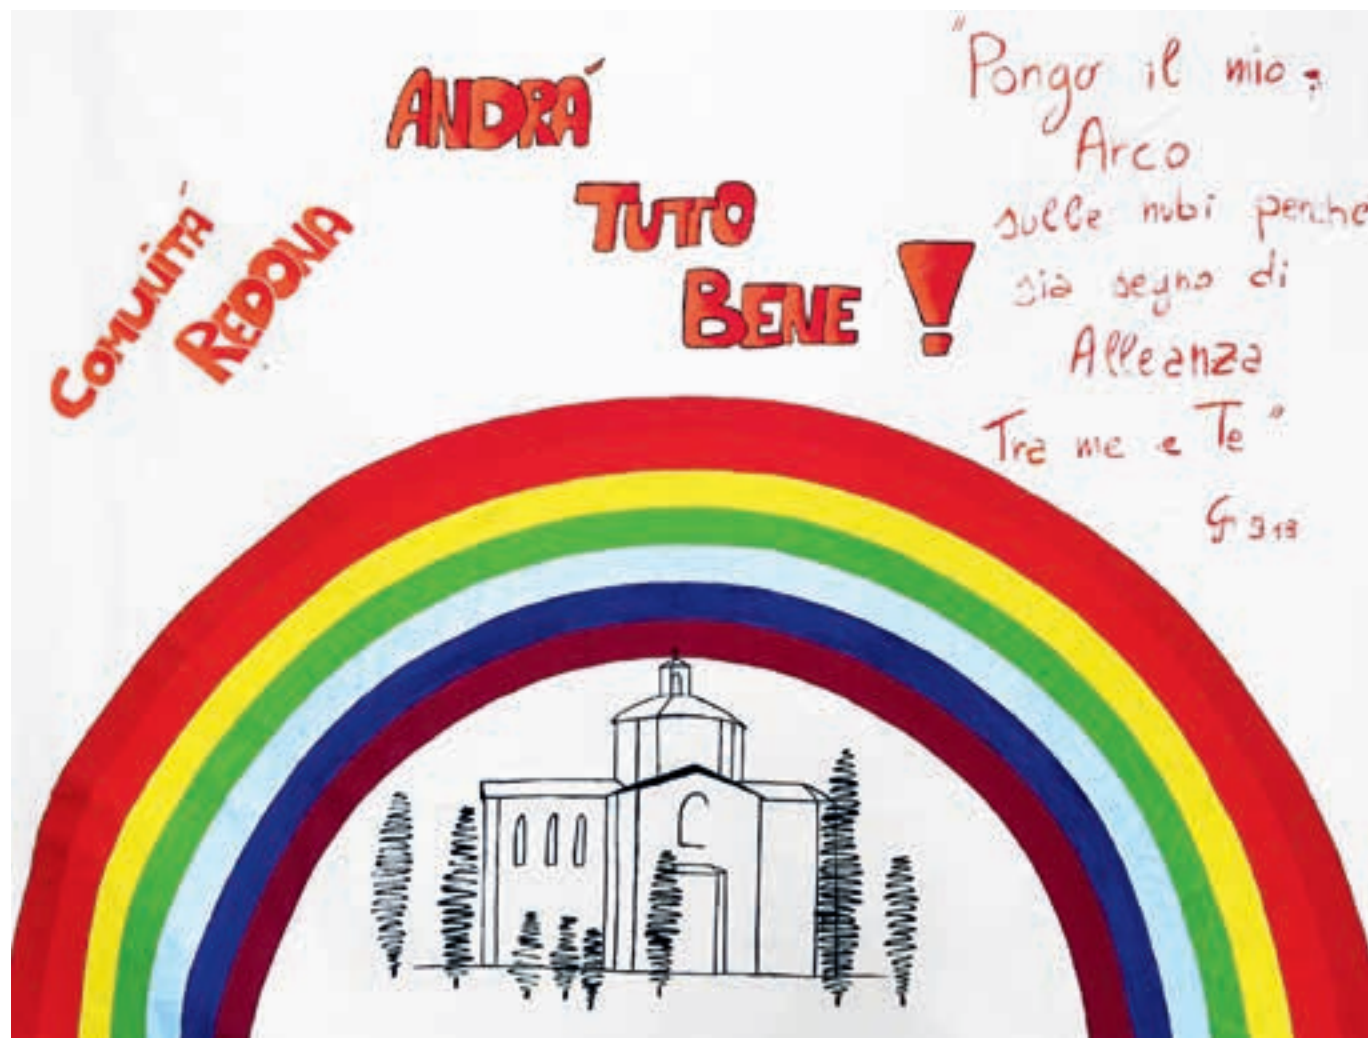 COMUNITÀ
REDONA
ANDRÀ
TUTTO
BENE!
"Pongo il mio
Arco
sulle nubi perche
sia segno di
Alleanza
Tra me e Te"
Gn 9 13